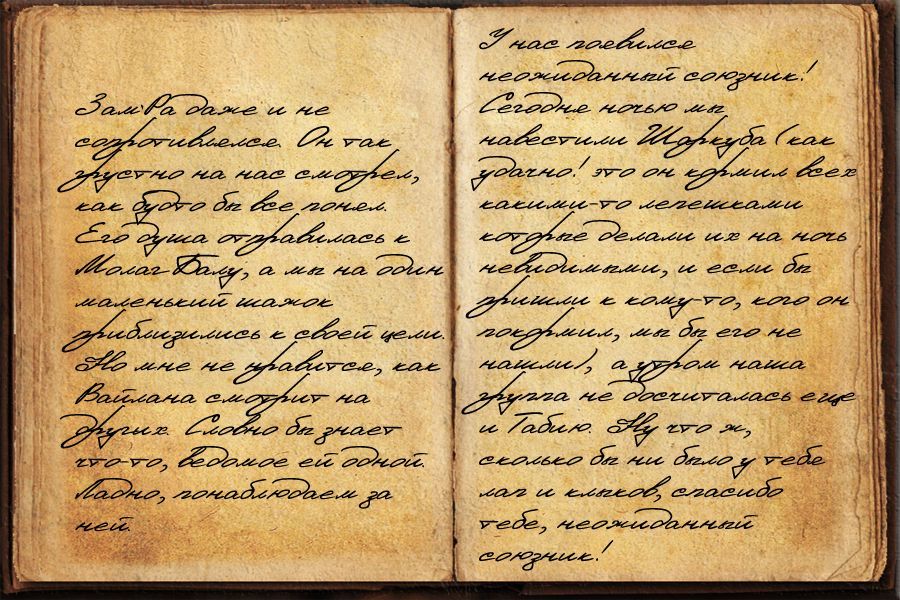 Зам'Ра даже и не
сопротивлялся. Он так
грустно на нас смотрел,
как будто бы все понял.
Его душа отправилась к
Молаг Балу, а мы на один
маленький шажок
приблизились к своей цели.
Но мне не нравится, как
Вайлана смотрит на
других. Словно бы знает
что-то, ведомое ей одной.
Ладно, понаблюдаем за
ней.
У нас появился
неожиданный союзник!
Сегодня ночью мы
навестили Шаркуба (как
удачно! это он кормил всех
какими-то лепешками
которые делали их на ночь
невидимыми, и если бы
пришли к кому-то, кого он
покормил, мы бы его не
нашли), а утром наша
группа не досчиталась еще
и Габию. Ну что ж,
сколько бы ни было у тебя
лап и клыков, спасибо
тебе, неожиданный
союзник!